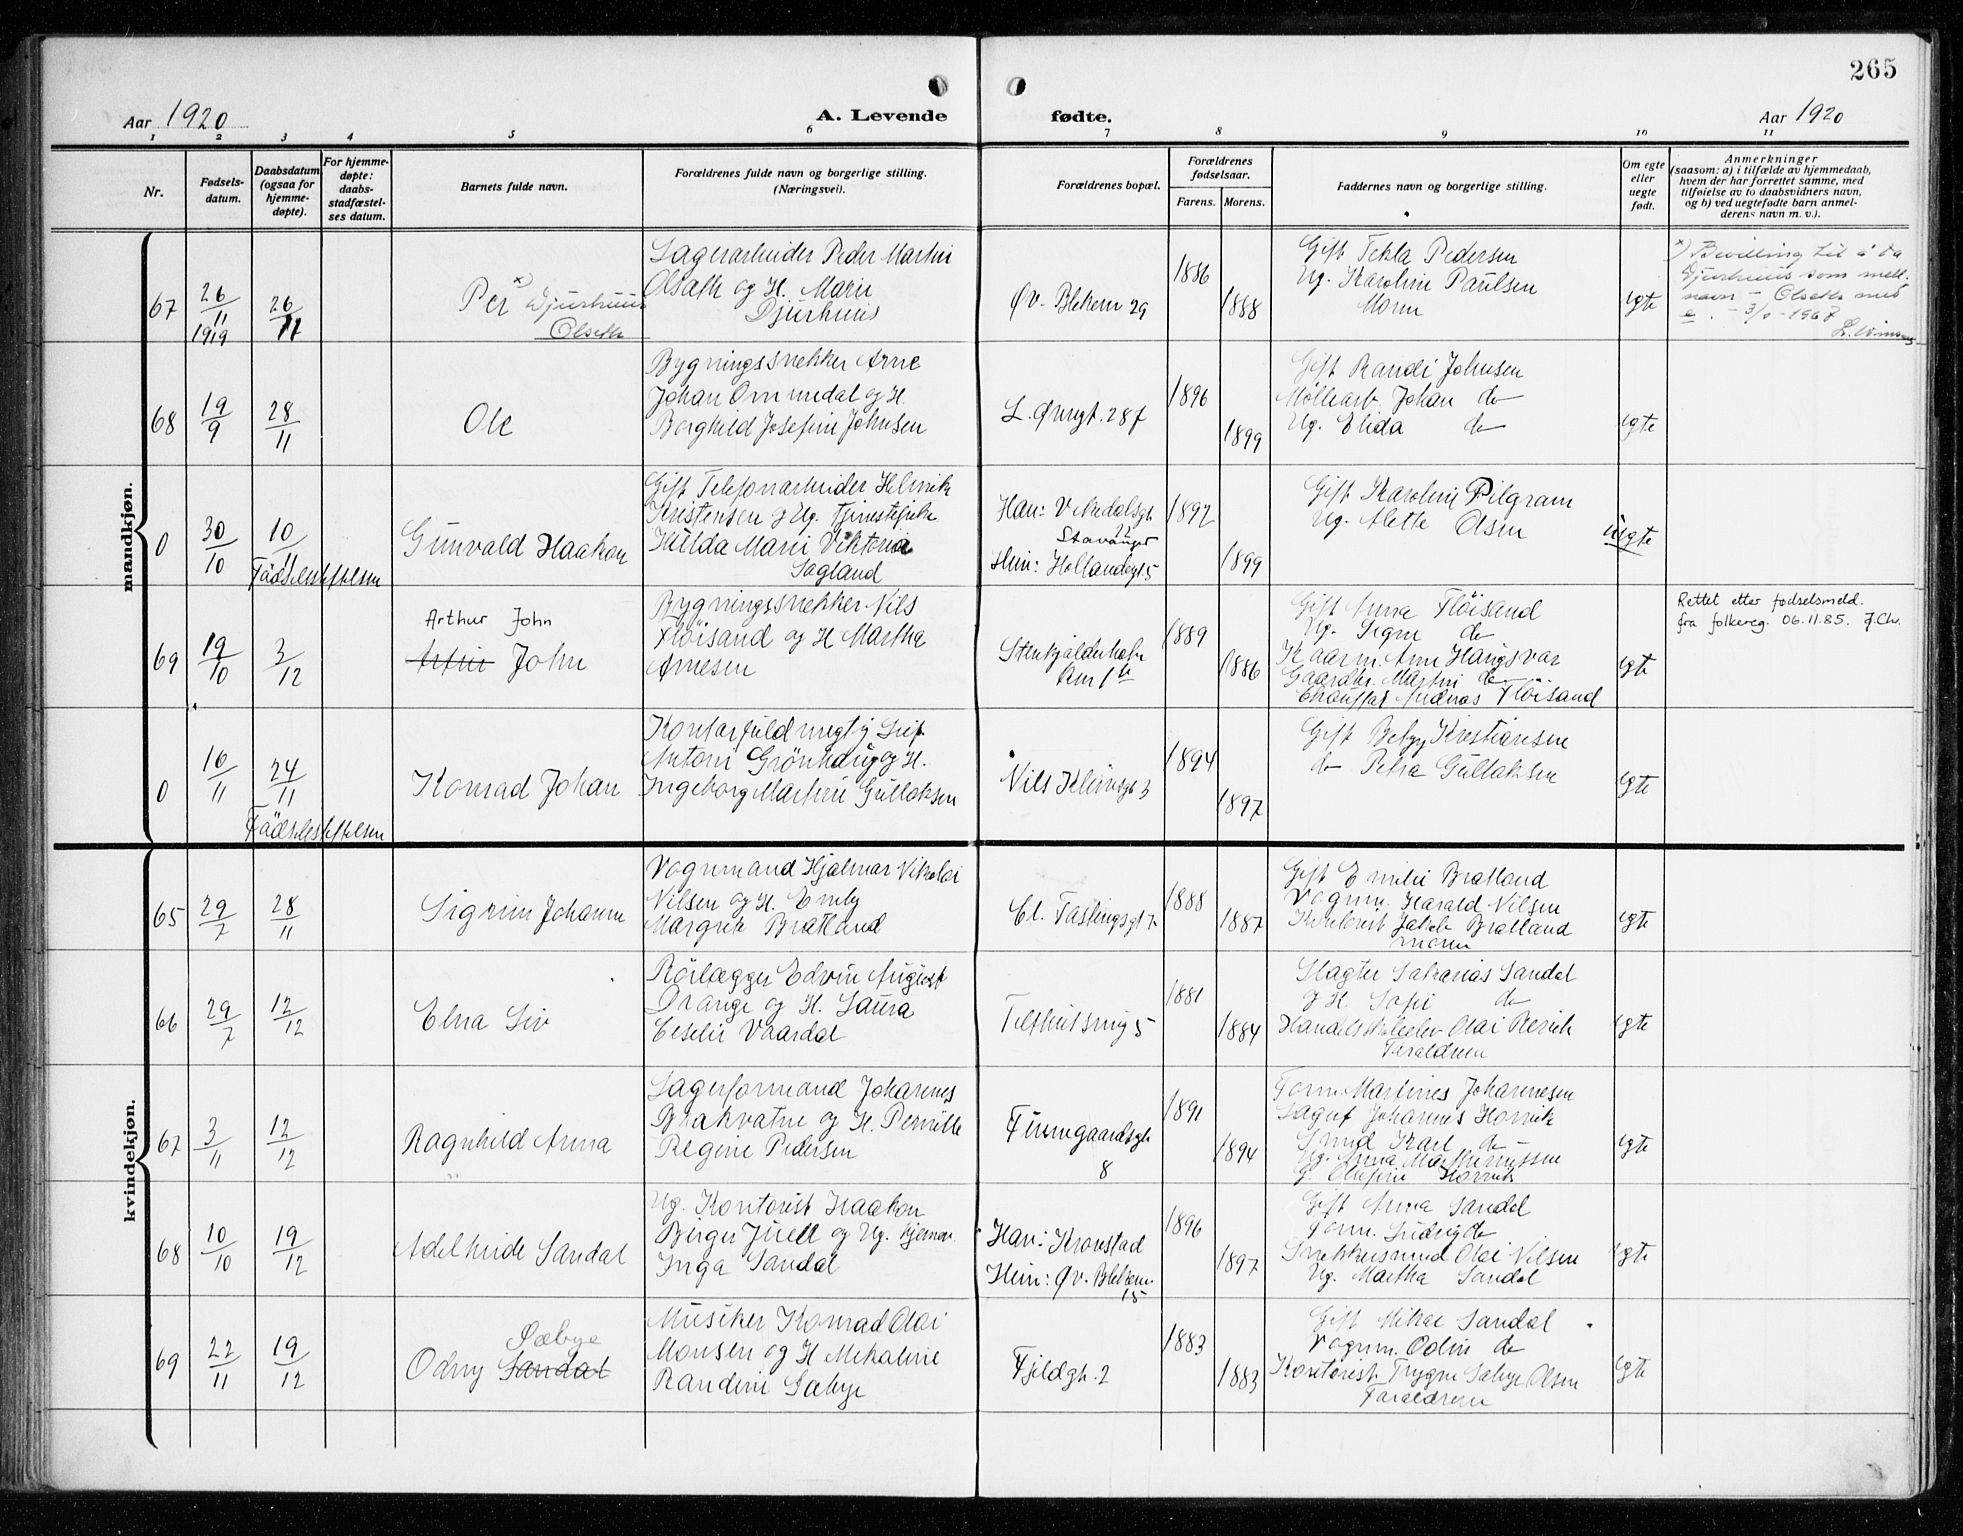 265
Aar 1920
A. Levende fødte.
Aar 1920
1 2 3 4 5 6 7 8 9 10 11
Nr.
Fødsels-
datum.
Daabsdatum
(ogsaa for
hjemme-
døpte).
For hjemme-
døpte:
daabs-
stadfæstel-
ses datum.
Barnets fulde navn.
Forældrenes fulde navn og borgerlige stilling.
(Næringsvei).
Forældrenes bopæl.
Forældrenes
fødselsaar.
Farens. Morens.
Faddernes navn og borgerlige stilling.
Om egte
eller
uegte
født.
Anmerkninger
(saasom: a) i tilfælde av hjemmedaab,
hvem der har forrettet samme, med
tilføielse av to daabsvidners navn,
og b) ved uegtefødte barn anmel-
derens navn m. v.).
mandkjøn.
67
26/11 1919
26/11
Per x) Djurhuus
Olseth
Lagerarbeider Peder Martin
Olseth og H. Marie
Djurhuus
Øv. Blekem 29
1886
1888
Gift Tekla Pedersen
Ug. Karoline Paulsen
Moren
egte
x) Bevilling til å ta
Djurhuus som mell.
navn - Olseth med
1967
68
19/9
28/11
Ole
Bygningssnekker Arne
Johan Ommedal og H.
Borghild Josefine Johnsen
L. Øvregt. 28 f
1896
1899
Gift Randi Johnsen
Møllearb. Johan do
Ug. Elida do
egte
0
30/10
10/11
Fødselsstiftelsen
Gunvald Haakon
Gift Telefonarbeider Helmik
Kristensen og Ug. Tjenestepike
Hulda Marie Viktoria
Sagland
Han: Vikedalsgt.
22
Stavanger
Hun: Hollendergt 5
1892
1899
Gift Karoline Pilgram
Ug. Alette Olsen
uegte
69
19/10
3/12
Arthur John
John
Bygningssnekker Nils
Fløisand og H Martha
Arnesen
1889
1886
Gift Anna Fløisand
Ug. Signe do
Gaardbr. Martin do
Chauffør Andreas Fløisand
egte
Rettet etter fødselsmeld.
fra folkereg. 06.11.85. J.Chr.
0
16/11
24/11
Fødselsstiftelsen
Konrad Johan
Kontorfuldmegtig Leif
Antoni Grönhaug og H.
Ingeborg Martine Gullaksen
Nils Kleinsgt 3
1894
1897
Gift Betzy Kristiansen
do Petra Gullaksen
egte
kvindekjøn.
65
29/7
28/11
Sigrun Johanne
Vognmand Hjalmar Nikolai
Nilsen og H. Emily
Margrete Bratland
Cl. Fastingsgt 7
1888
1887
Gift Emilie Bratland
Vognm. Harald Nilsen
Kontorist Jakob Bratland
moren
egte
66
29/7
12/12
Elna Siv
Rörlægger Edvin August
Drange og H. Laura
Ceselie Vaardal
Tilthutsmug 5
1881
1884
Slagter Sakarias Sandal
og H. Sofie do
Handelsskoleelev Olai Rerik
Faraldren
egte
67
3/11
12/12
Ragnhild Anna
Lagerformand Johannes
Brakvatne og H. Pernille
Regine Pedersen
Finnegaardsgt
8
1891
1894
Form. Martines Johannesen
Lagerf Johannes Horvik
Smed Karl do
Ug. Anna Mathinussen
G. Olufine Horvik
egte
68
10/10
19/12
Adelheide Sandal
Ug. Kontorist Haakon
Birger Juell og Ug. hjemmev.
Inga Sandal
Han: Kronstad
Hun: Øv. Blekem.
15
1896
1897
Gift Anna Sandal
Form. Ludvig do
Snekkersvend Olai Nilsen
Ug. Martha Sandal
egte
69
22/11
19/12
Sæbye
Odny Sandal
Musiker Konrad Olai
Monsen og H Mikaline
Randine Sæbye
Fjeldgt. 2
1883
1883
Gift Mikal Sandal
Vognm. Odin do
Kontorist Trygve Sæbye Olsen
Faraldren
egte